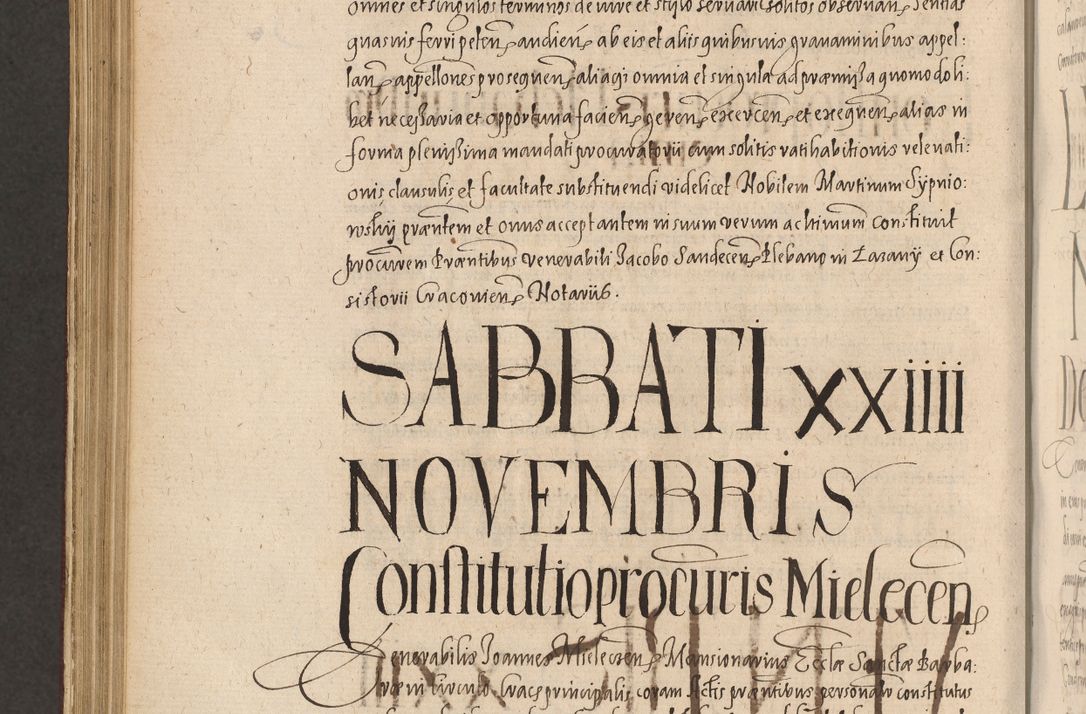 omnes et singulos terminos de iure et stylo servari solitos observan̄ Sentias
quasvis ferri peten̄ audien̄ ab eis et aliis quibusvis gravaminibus appel:
lan̄ appellones prosequen̄ aliaq; omnia et singula ad præmissa quomodoli:
bet necessaria et opportuna facien̄ geren̄ exercen̄ et exequen̄ alias in
forma plenissima mandati procuratorii cum solitis ratihabitionis relevati:
onis clausulis et facultate substituendi videlicet Nobilem Martinum Sypnio:
wskij præntem et onus acceptantem in suum verum ac ltimum constituit
procurem Præntibus venerabili Jacobo Sandecen̄ Plebano in Lazany et Con:
sistorii Cracovien̄ Notariis.
SABBATI xxiiii
NOVEMBRIS
Constitutio procuris Mielecen̄
Venerabilis Joannes Mielecen̄ Mansionarius Eccłæ Sanctæ Barba:
ræ in Circulo Cracæ principalis coram Actis præntibus personalr constitutus